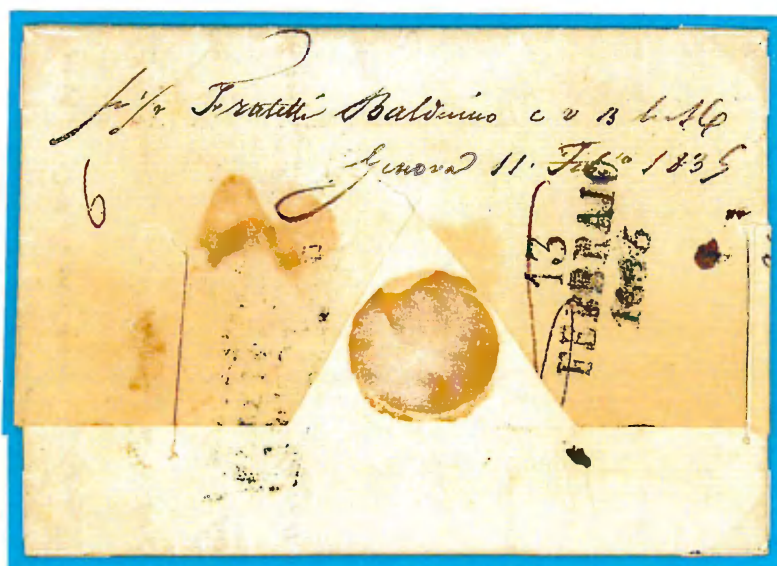 Fratelli Balduino
Genova 11. Feb.º 1835
6
13
FEBBRAIO
1835